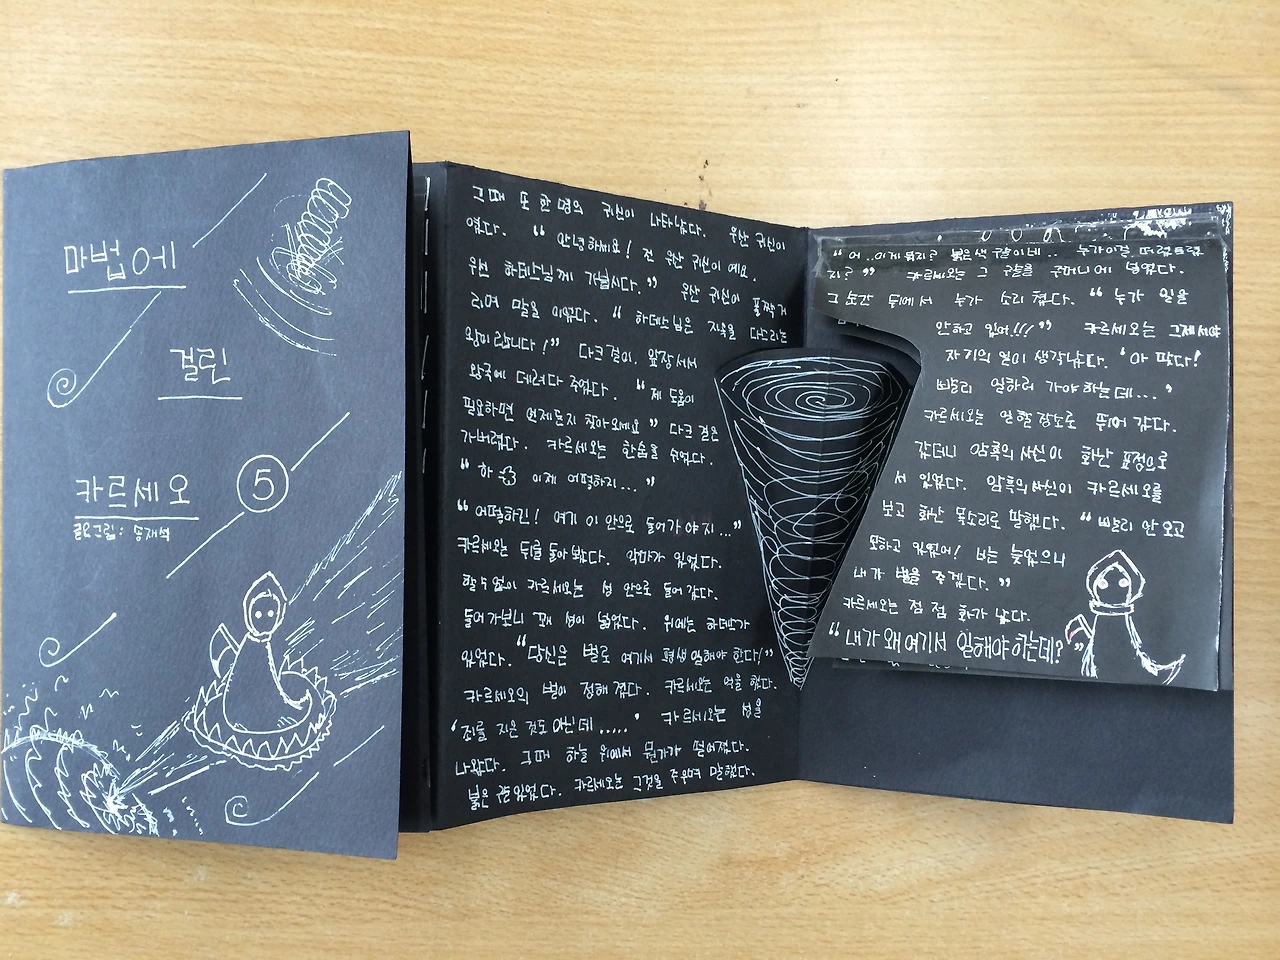 마법에
걸린
카르세오 5
글쓴그림: 송재석
그때 또 한 명의 귀신이 나타났다. 우산 귀신이
였다. “안녕하세요! 전 우산 귀신이 예요.
우선 하데스님께 가봅시다.” 우산 귀신이 폴짝거
리며 말을 이었다. “하데스님은 지옥을 다스리는
왕이랍니다!” 다크 걸이 앞장서서
왕국에 데려다 주었다. “제 도움이
필요하면 언제든지 찾아오세요” 다크 걸은
가버렸다. 카르세오는 한숨을 쉬었다.
“하 이제 어떻하지...”
“어떻하긴! 여기 이 안으로 들어가야지...”
카르세오는 뒤를 돌아봤다. 악마가 있었다.
할수없이 카르세오는 성 안으로 들어갔다.
들어가보니 꽤 성이 넓었다. 위에는 하데스가
있었다. “당신은 벌로 여기서 평생 일해야 한다!”
카르세오의 벌이 정해졌다. 카르세오는 억울했다.
‘죄를 지은 것도 아닌데.....’ 카르세오는 성을
나왔다. 그때 하늘 위에서 뭔가가 떨어졌다.
붉은 구슬이었다. 카르세오는 그것을 주우며 말했다.
“어..이게 뭐지? 붉은색 구슬이네.. 누가이걸 떨어트렸
지?” 카르세오는 그 구슬을 주머니에 넣었다.
그 순간 뒤에서 누가 소리쳤다. “누가 일을
안하고 있어!!!” 카르세오는 그제서야
자기의 일이 생각났다. ‘아 맞다!
빨리 일하러 가야 하는데...’
카르세오는 일할 장소로 뛰어 갔다.
갔더니 암흑의 사신이 화난 표정으로
서 있었다. 암흑의 사신이 카르세오를
보고 화난 목소리로 말했다. “빨리 안 오고
뭇하고 있었어! 너는 늦었으니
내가 벌을 주겠다.”
카르세오는 점 점 화가 났다.
“내가 왜 여기서 일해야 하는데?”